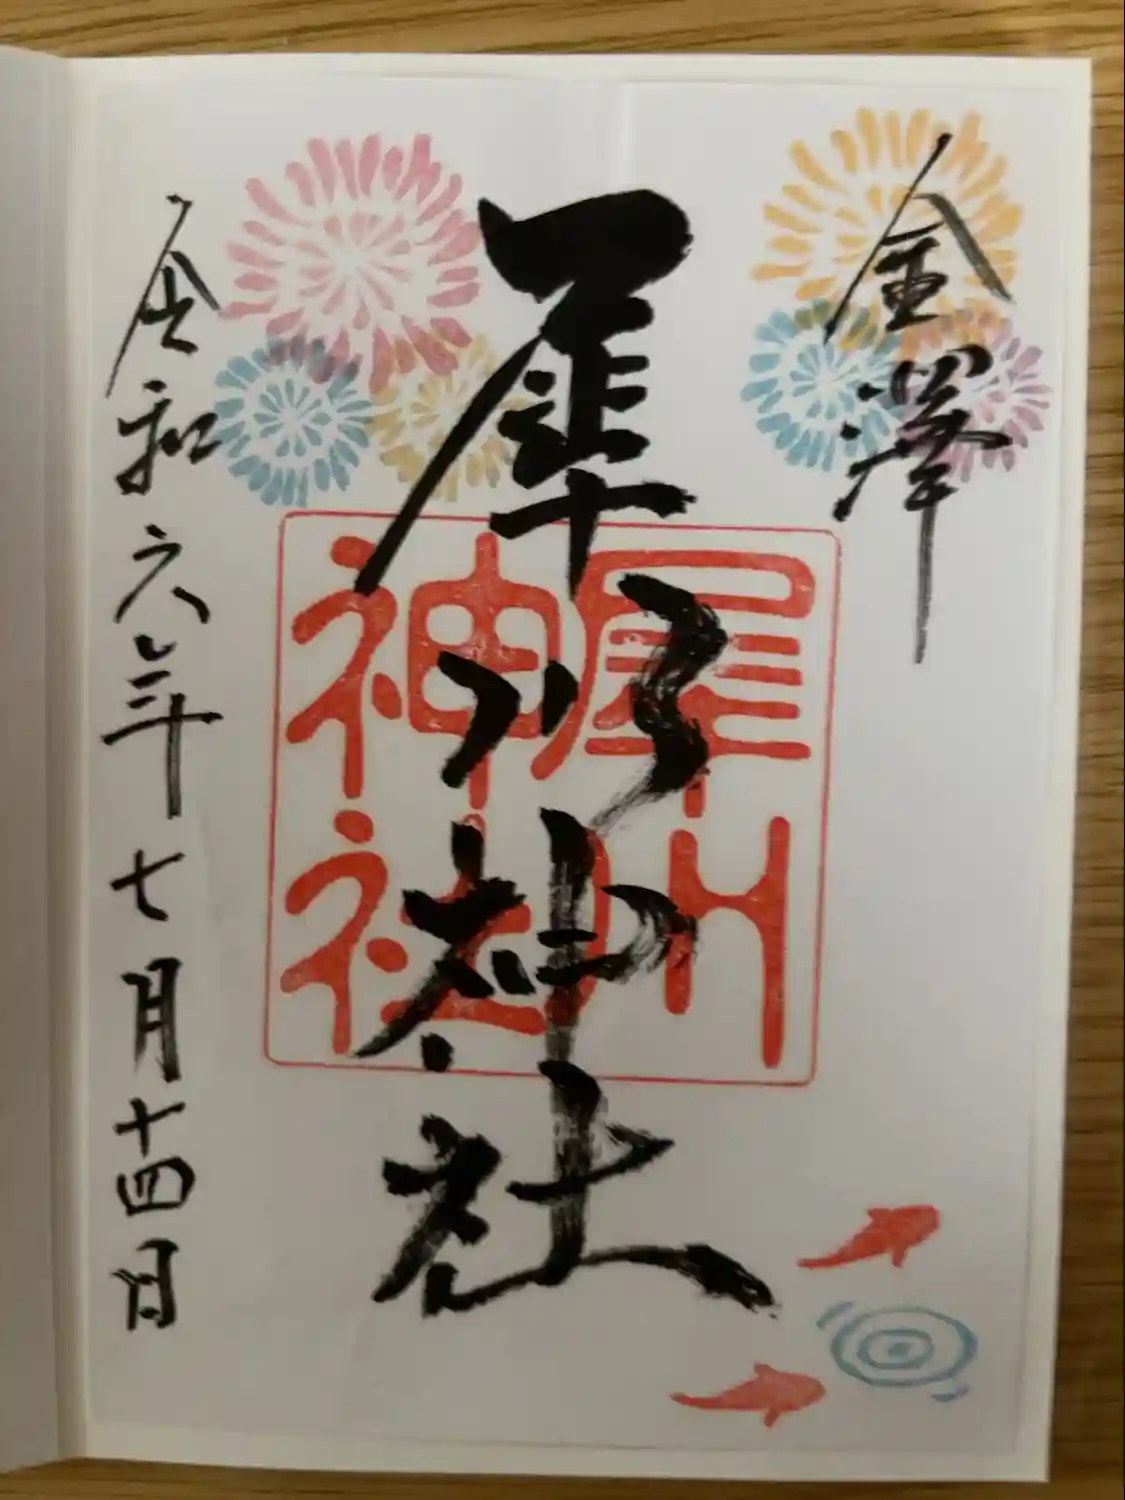 金澤
犀川神社
犀川
神社
令和六年七月十四日